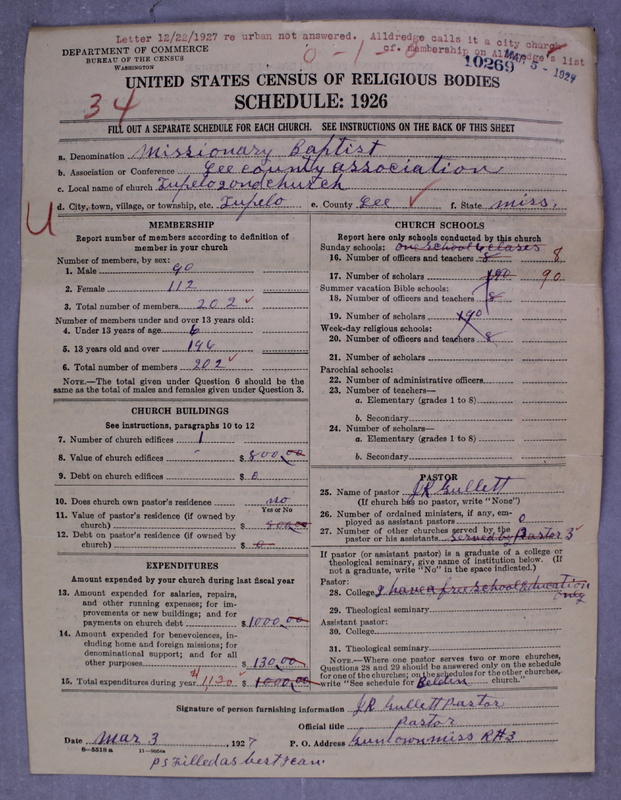 Letter 12/22/1927 re urban not answered. Alldredge calls it a city church
cf. membership on Alldredge's list
0-1-0
DEPARTMENT OF COMMERCE
BUREAU OF THE CENSUS
WASHINGTON
10269 MAR 5 - 1927
UNITED STATES CENSUS OF RELIGIOUS BODIES
34
SCHEDULE: 1926
FILL OUT A SEPARATE SCHEDULE FOR EACH CHURCH. SEE INSTRUCTIONS ON THE BACK OF THIS SHEET
a. Denomination Missionary Baptist
b. Association or Conference Lee county association
c. Local name of church Tupelo 2ond church
d. City, town, village, or township, etc. Tupelo e. County Lee f. State miss.
U
MEMBERSHIP
Report number of members according to definition of
member in your church
Number of members, by sex:
1. Male 90
2. Female 112
3. Total number of members 202
Number of members under and over 13 years old:
4. Under 13 years of age 6
5. 13 years old and over 196
6. Total number of members 202
NOTE.—The total given under Question 6 should be the
same as the total of males and females given under Question 3.
CHURCH BUILDINGS
See instructions, paragraphs 10 to 12
7. Number of church edifices 1
8. Value of church edifices $ 800.00
9. Debt on church edifices $ 0
10. Does church own pastor's residence no
Yes or No
11. Value of pastor's residence (if owned by
church) $ 800.00
12. Debt on pastor's residence (if owned by
church) $ 0
EXPENDITURES
Amount expended by your church during last fiscal year
13. Amount expended for salaries, repairs,
and other running expenses; for im-
provements or new buildings; and for
payments on church debt $ 1000.00
14. Amount expended for benevolences, in-
cluding home and foreign missions; for
denominational support; and for all
other purposes $ 130.00
15. Total expenditures during year $1,130 $ 1000.00
CHURCH SCHOOLS
Report here only schools conducted by this church
Sunday schools: one school 6 clases
16. Number of officers and teachers 8 8
17. Number of scholars 190 90
Summer vacation Bible schools:
18. Number of officers and teachers 8
19. Number of scholars 190
Week-day religious schools:
20. Number of officers and teachers 8
21. Number of scholars
Parochial schools:
22. Number of administrative officers
23. Number of teachers—
a. Elementary (grades 1 to 8)
b. Secondary
24. Number of scholars—
a. Elementary (grades 1 to 8)
b. Secondary
PASTOR
25. Name of pastor J R Gullett
(If church has no pastor, write "None")
26. Number of ordained ministers, if any, em-
ployed as assistant pastors 0
27. Number of other churches served by the
pastor or his assistants served by Pastor 3
If pastor (or assistant pastor) is a graduate of a college or
theological seminary, give name of institution below. (If
not a graduate, write "No" in the space indicated.)
Pastor:
28. College I have a free school education
only
29. Theological seminary
Assistant pastor:
30. College
31. Theological seminary
NOTE.—Where one pastor serves two or more churches,
Questions 28 and 29 should be answered only on the schedule
for one of the churches; on the schedules for the other churches,
write "See schedule for Belden church."
Signature of person furnishing information J R Gullett Pastor
Official title Pastor
Date Mar 3, 1927 P. O. Address Guntown miss R#3
8-5518 a
Ps Filled as best I can